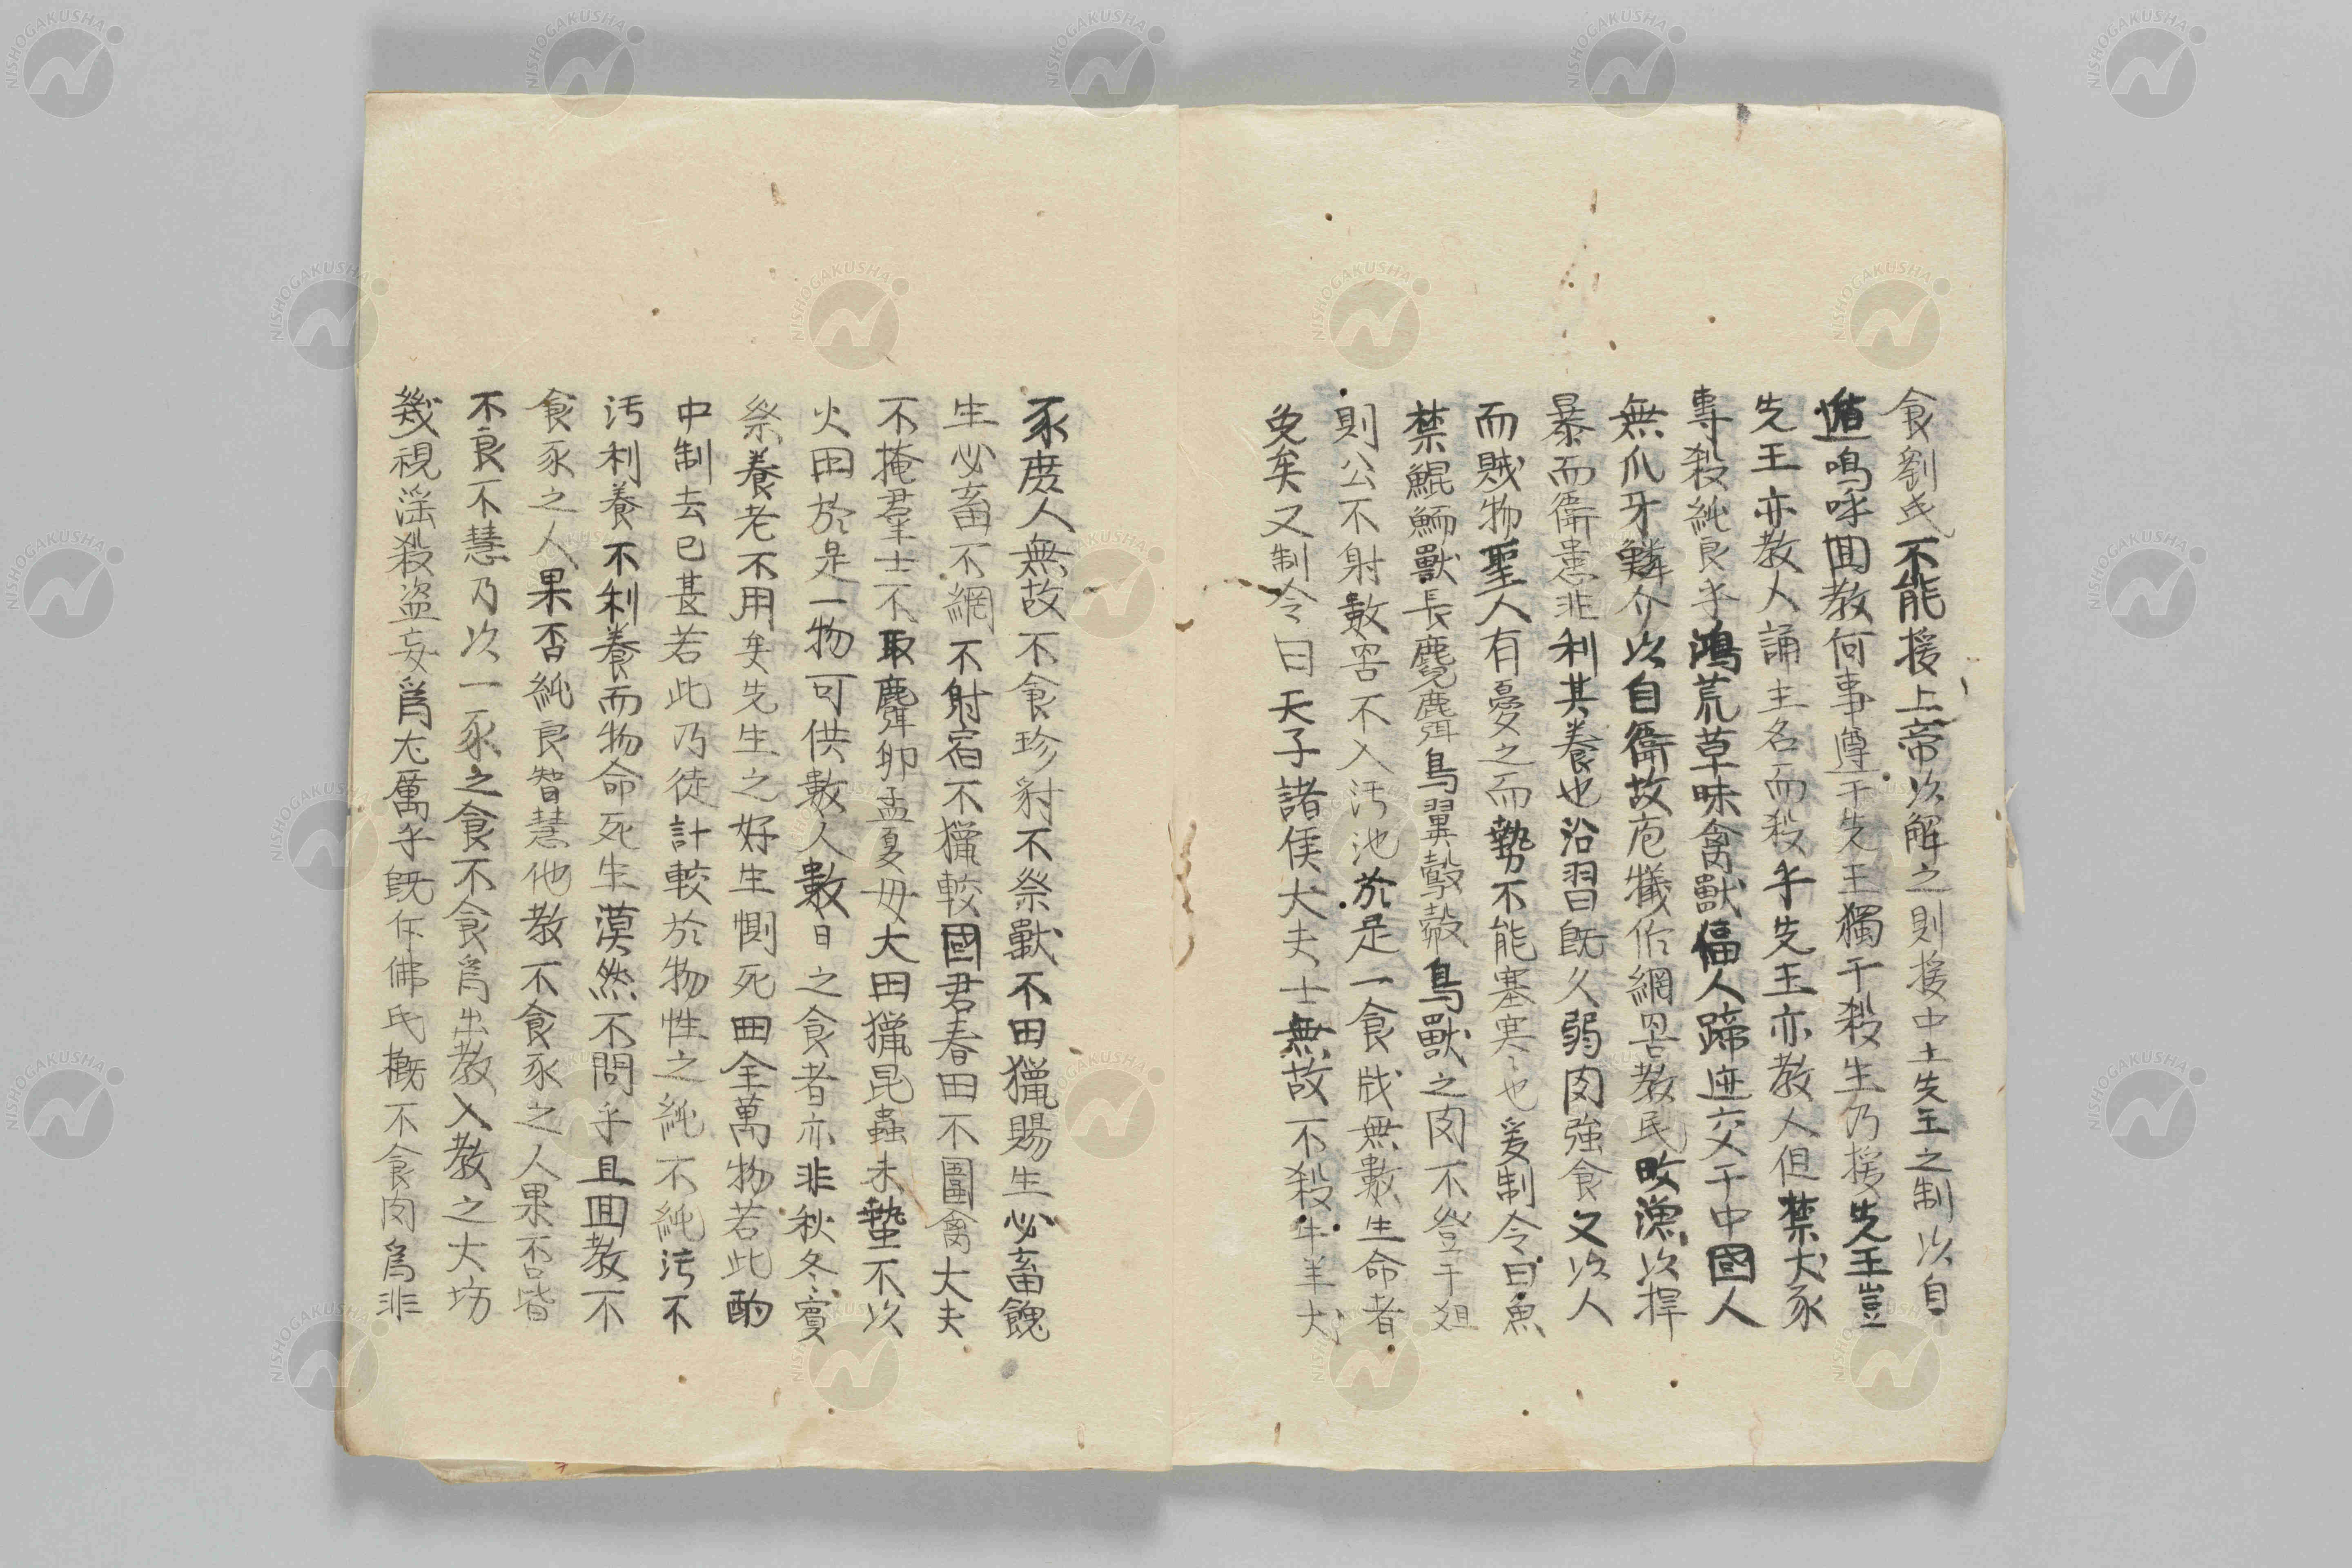 食劉氏不能援上帝以解之則援中土先王之制以自
遁嗚呼囬教何事遵于先王獨于殺生乃援先王豈
先王亦教人誦主名而殺乎先王亦教人但禁犬豕
專殺純良乎鴻荒草昧禽獸偪人蹄迹交于中國人
無爪牙鱗介以自衛故庖犧作網罟教民畋漁以捍
暴而衛患非利其養也沿習既久弱肉強食又以人
而賊物聖人有憂之而勢不能塞塞〻也爰制令曰魚
禁鯤鮞獸長麑麛鳥翼鷇䴰鳥獸之肉不登于俎
則公不射數罟不入汚池於是一食戕無數生命者
免矣又制令曰天子諸侯大夫士無故不殺牛羊犬
豕庶人無故不食珍豺不祭獸不田獵賜生必畜餽
生必畜不網不射宿不獵較國君春田不圍禽大夫
不掩羣士不取麛卵孟夏毋大田獵昆蟲未蟄不以
火田於是一物可供數人數日之食者亦非秋冬賓
祭養老不用矣先生之好生惻死曲全萬物若此酌
中制去已甚若此乃徒計較於物性之純不純汚不
汚利養不利養而物命死生漠然不問乎且囬教不
食豕之人果否純良智慧他教不食豕之人果否皆
不良不慧乃以一豕之食不食爲出教入教之大坊
幾視淫殺盜妄爲尤厲乎旣斥佛氏槪不食肉爲非